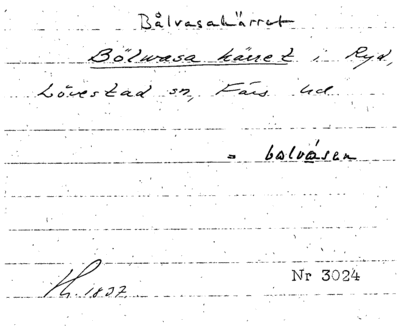 Bålvasakärret
Bölwasa kärret i Ryd,
Lövestad sn, Färs hd
= bolvåsen
Nr 3024
1827